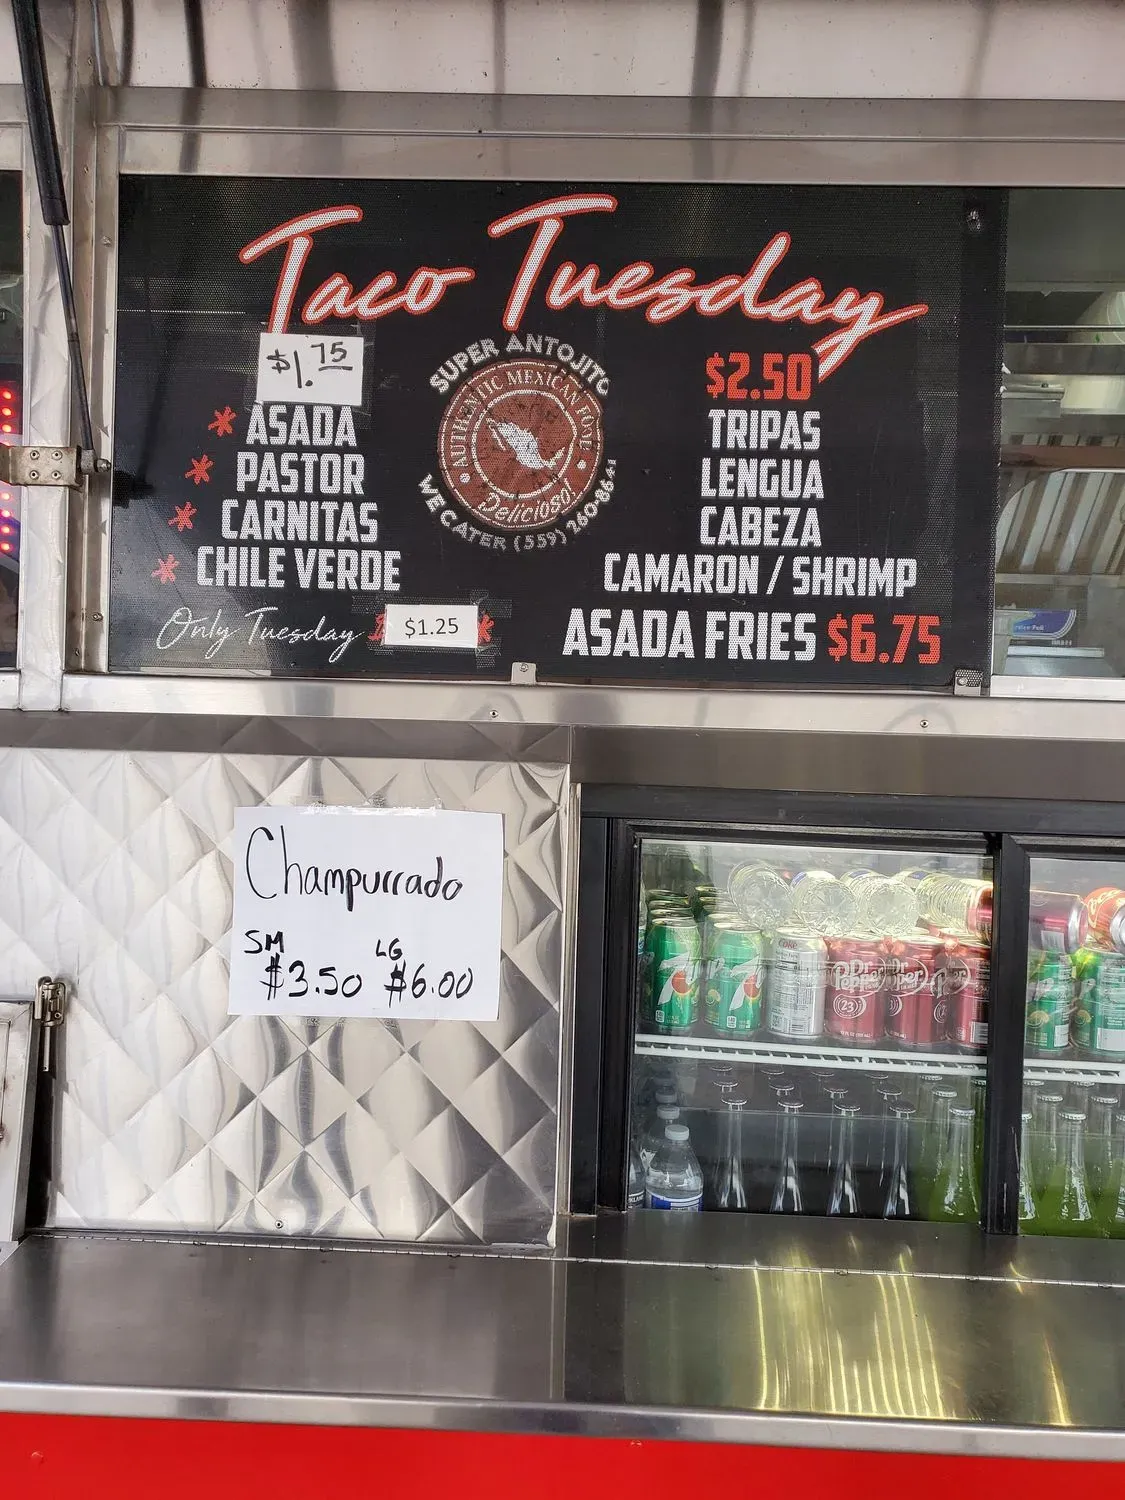 Taco Tuesday
$1.75
* ASADA
* PASTOR
* CARNITAS
* CHILE VERDE
Only Tuesday $1.25 *
SUPER ANTOJITO
AUTHENTIC MEXICAN FOOD
Delicioso!
WE CATER (559) 260-8641
$2.50
TRIPAS
LENGUA
CABEZA
CAMARON / SHRIMP
ASADA FRIES $6.75
Champurrado
SM LG
$3.50 $6.00
7
7
Coke
Dr Pepper
23
Dr Pepper